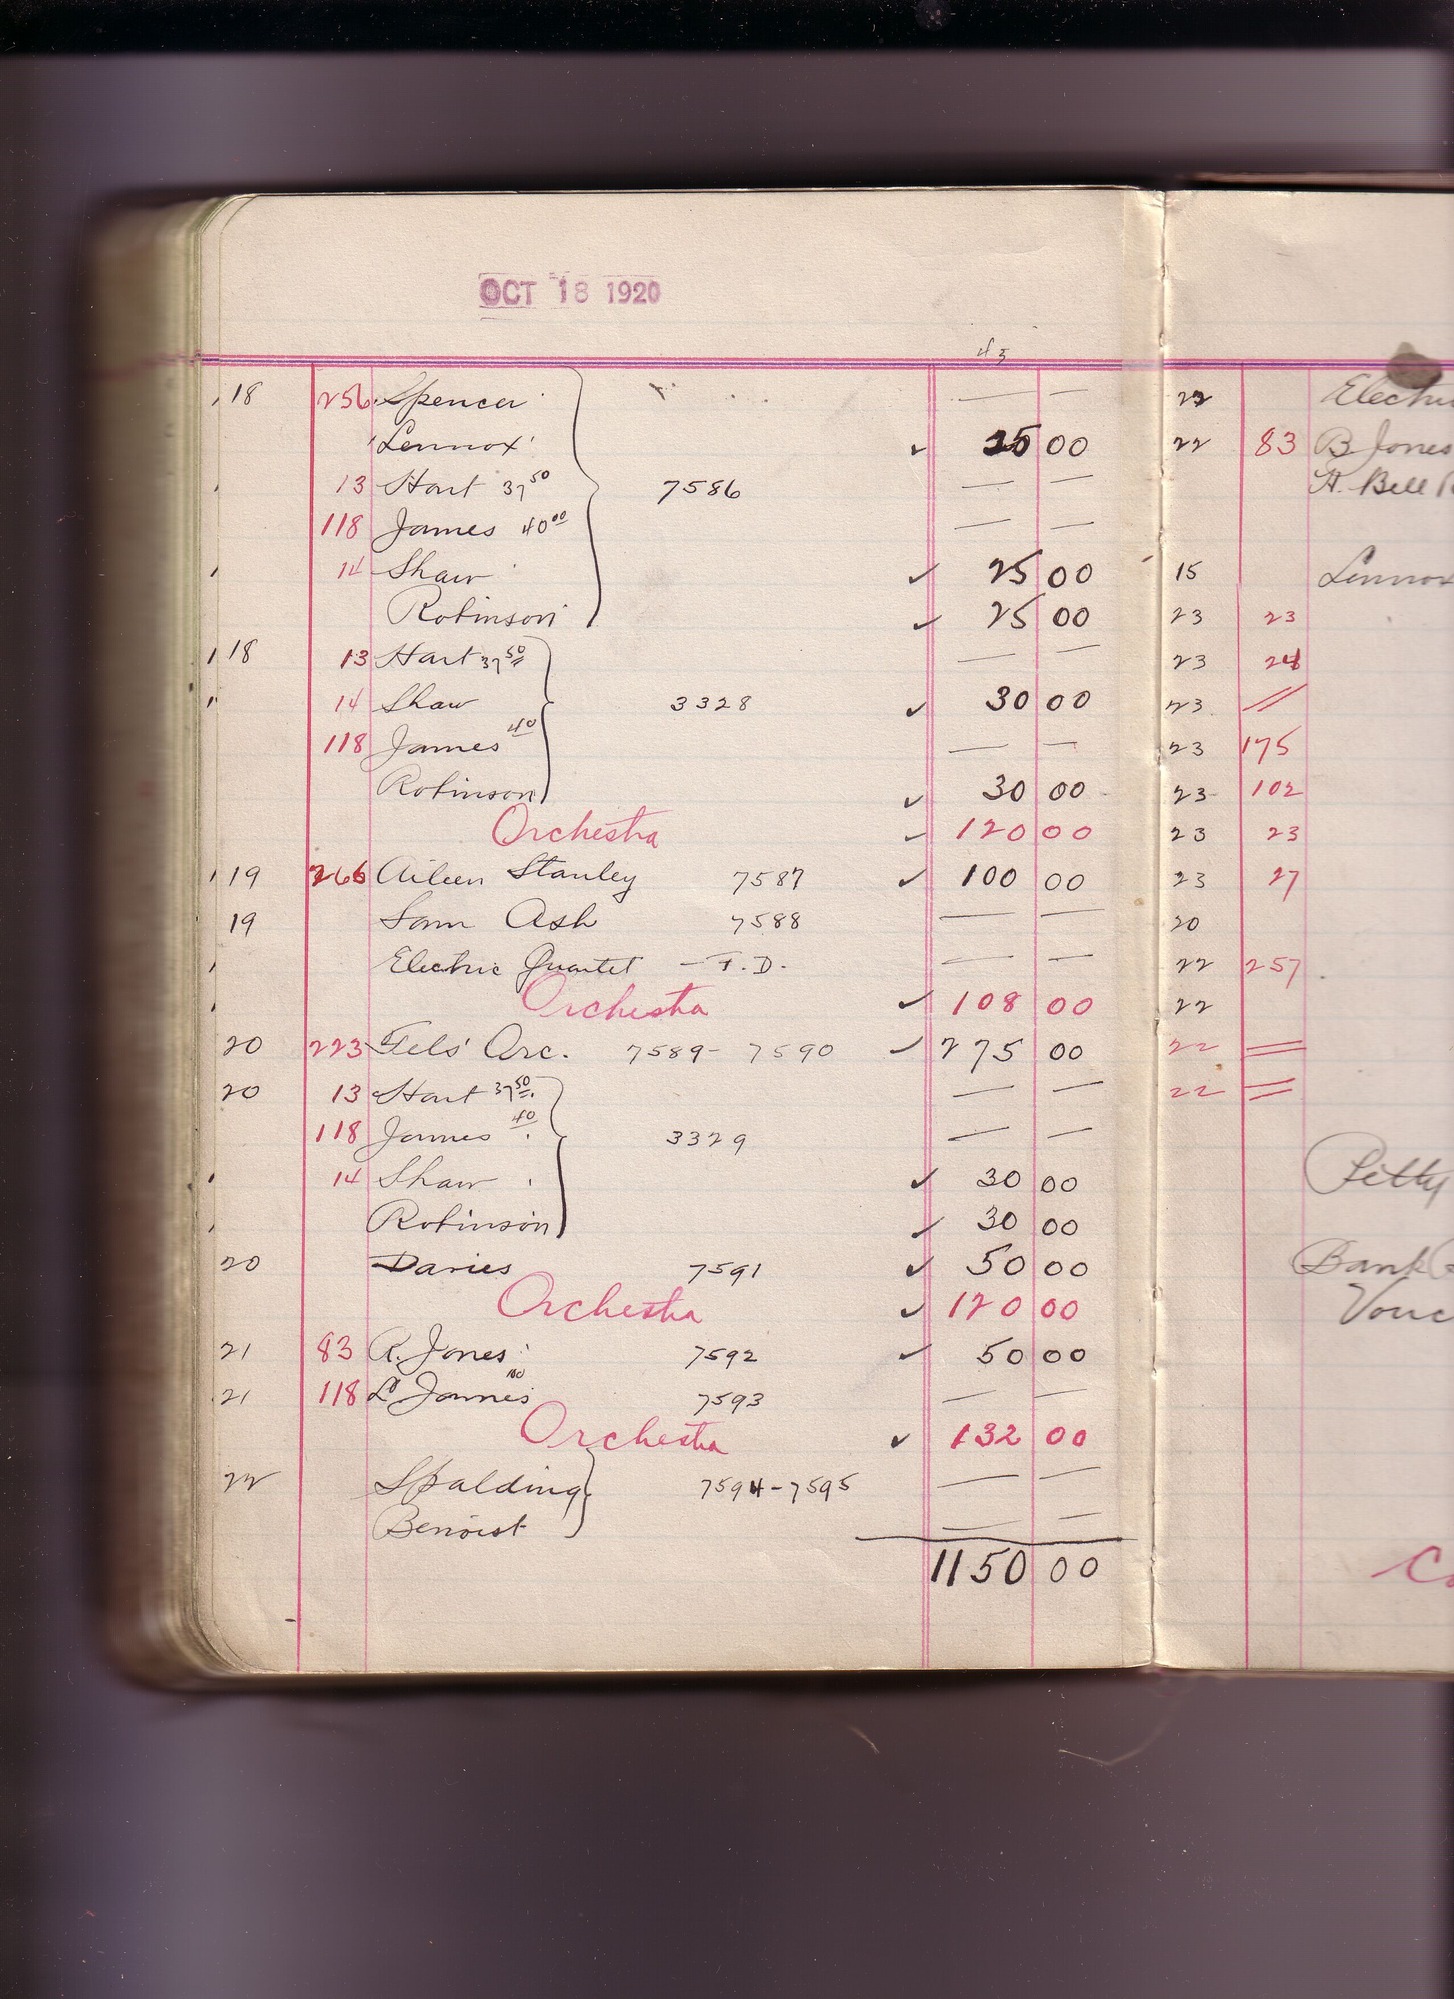 OCT 18 1920
45
18 256 Spencer — —
Lennox ✓ 25 00
13 Hart 37 50 7586 — —
118 James 40 00 — —
14 Shaw ✓ 25 00
Robinson ✓ 25 00
18 13 Hart 37 50 — —
14 Shaw 3328 ✓ 30 00
118 James 40 — —
Robinson ✓ 30 00
Orchestra ✓ 120 00
19 266 Aileen Stanley 7587 ✓ 100 00
19 Sam Ash 7588 — —
Electric Quartet — T.D. — —
Orchestra ✓ 108 00
20 223 Fels' Orc. 7589 - 7590 ✓ 275 00
20 13 Hart 37 50 — —
118 James 40 3329 — —
14 Shaw ✓ 30 00
Robinson ✓ 30 00
20 Davies 7591 ✓ 50 00
Orchestra ✓ 120 00
21 83 R. Jones 7592 ✓ 50 00
21 118 L. James 7593 — —
Orchestra ✓ 132 00
22 Spalding 7594-7595 — —
Benoist — —
1150 00
22 Electric
22 83 B Jones
H. Bell
15 Lennox
23 23
23 24
23 //
23 175
23 102
23 23
23 27
20
22 257
22
22 =
22 =
Petty
Bank
Vouc